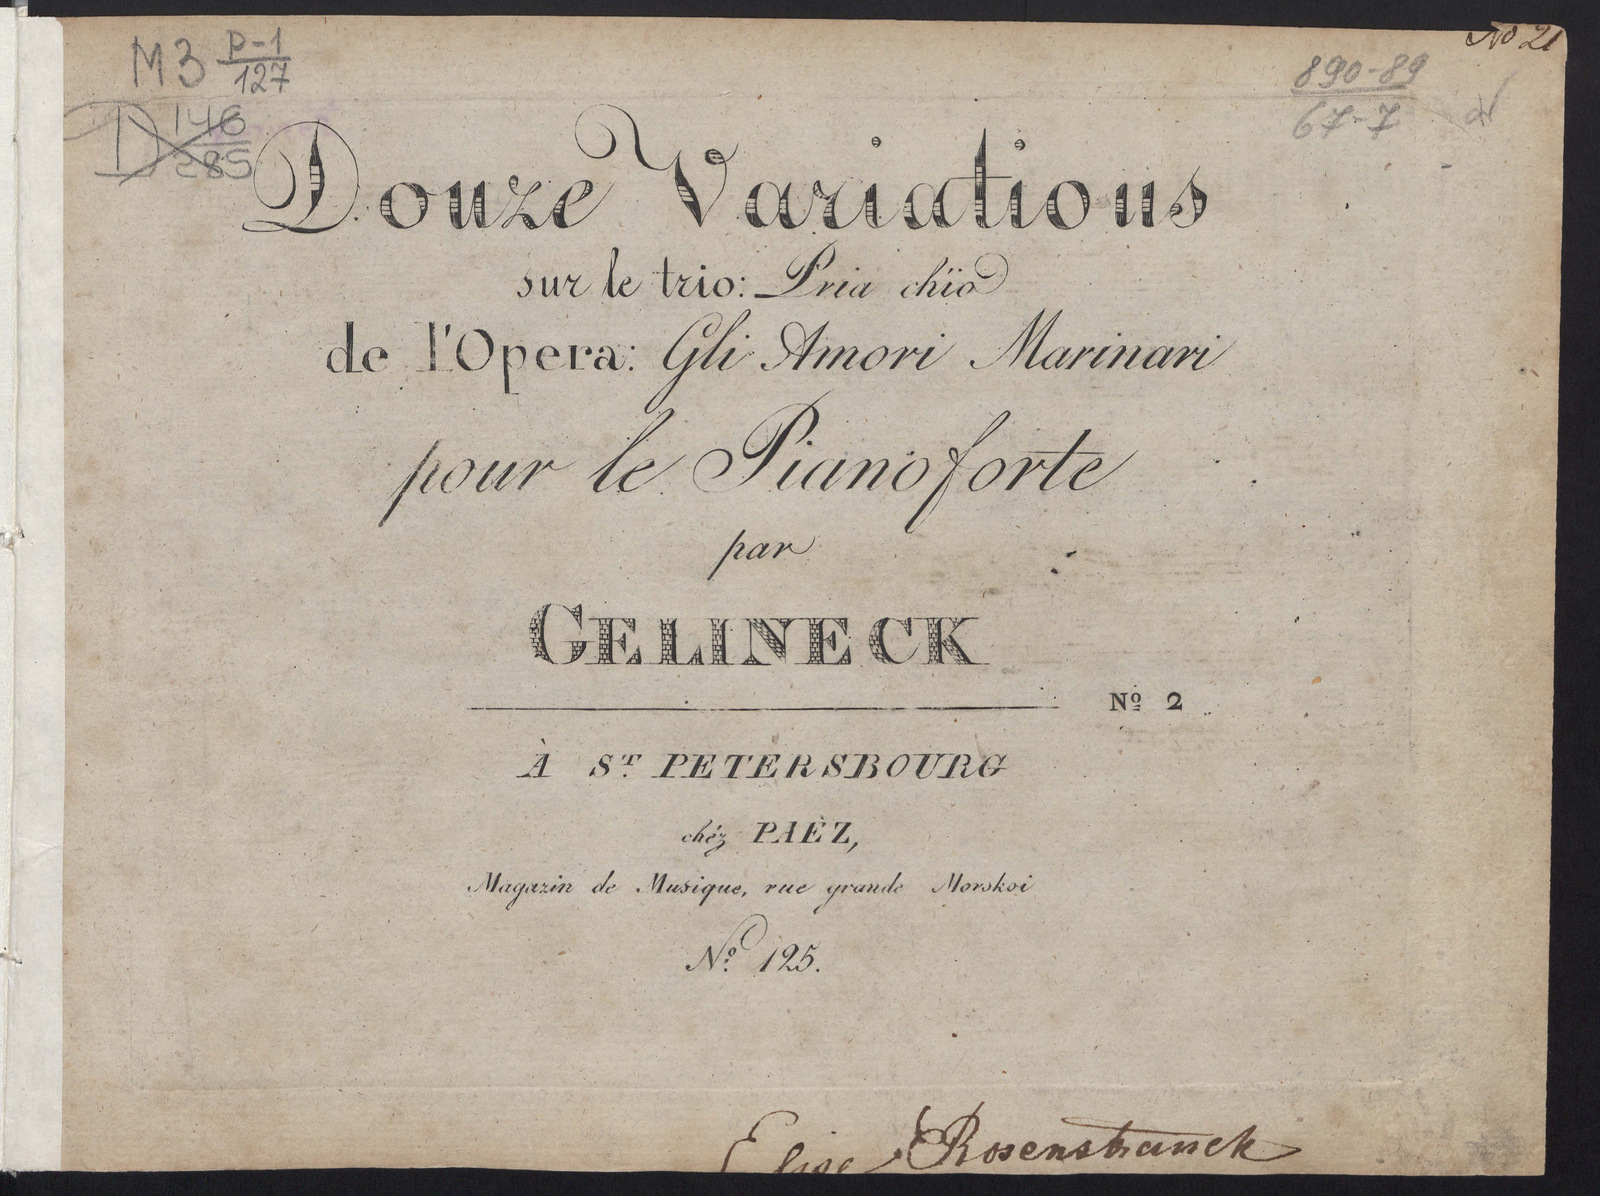 M3 P-1/127
146/285
No 21
890-89
67-7
Douze Variations
sur le trio: Pria chïo
de l'Opera: Gli Amori Marinari
pour le Pianoforte
par
GELINECK
Nº 2
À ST PETERSBOURG
chéz PAËZ,
Magazin de Musique, rue grande Morskoi
Nº 125.
Elise Rosenstrauch